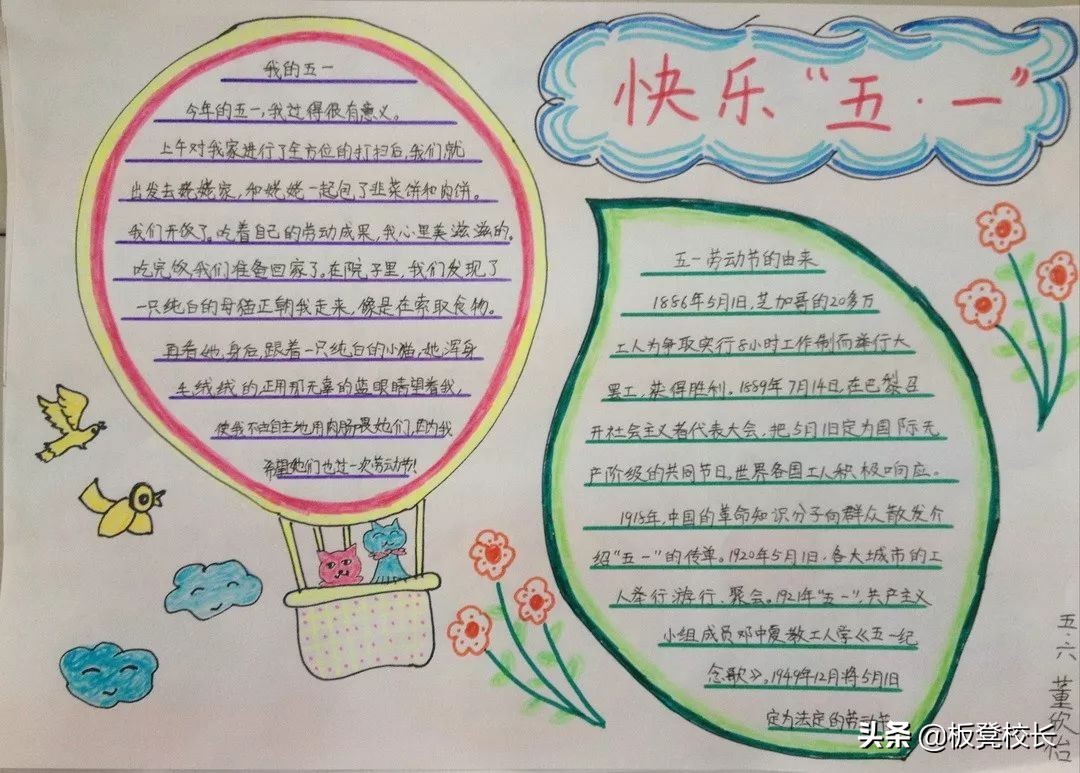 快乐“五·一”
我的五一
今年的五一,我过得很有意义。
上午对我家进行了全方位的打扫后,我们就
出发去姥姥家,和姥姥一起包了韭菜饼和肉饼。
我们开饭了。吃着自己的劳动成果,我心里美滋滋的。
吃完饭,我们准备回家了。在院子里,我们发现了
一只纯白的母猫正朝我走来,像是在索取食物。
再看她,身后跟着一只纯白的小猫,她浑身
毛绒绒的正用那无辜的蓝眼睛望着我,
使我不由自主地用肉肠喂她们,因为我
希望她们也过一次劳动节!
五一劳动节的由来
1886年5月1日,芝加哥的20多万
工人为争取实行8小时工作制而举行大
罢工,获得胜利。1889年7月14日,在巴黎召
开社会主义者代表大会,把5月1日定为国际无
产阶级的共同节日。世界各国工人积极响应。
1918年,中国的革命知识分子向群众散发介
绍“五一”的传单。1920年5月1日,各大城市的工
人举行游行、聚会。1921年“五一”,共产主义
小组成员邓中夏教工人学《五一纪
念歌》。1949年12月将5月1日
定为法定的劳动节
五·六 董欣怡
头条 @板凳校长